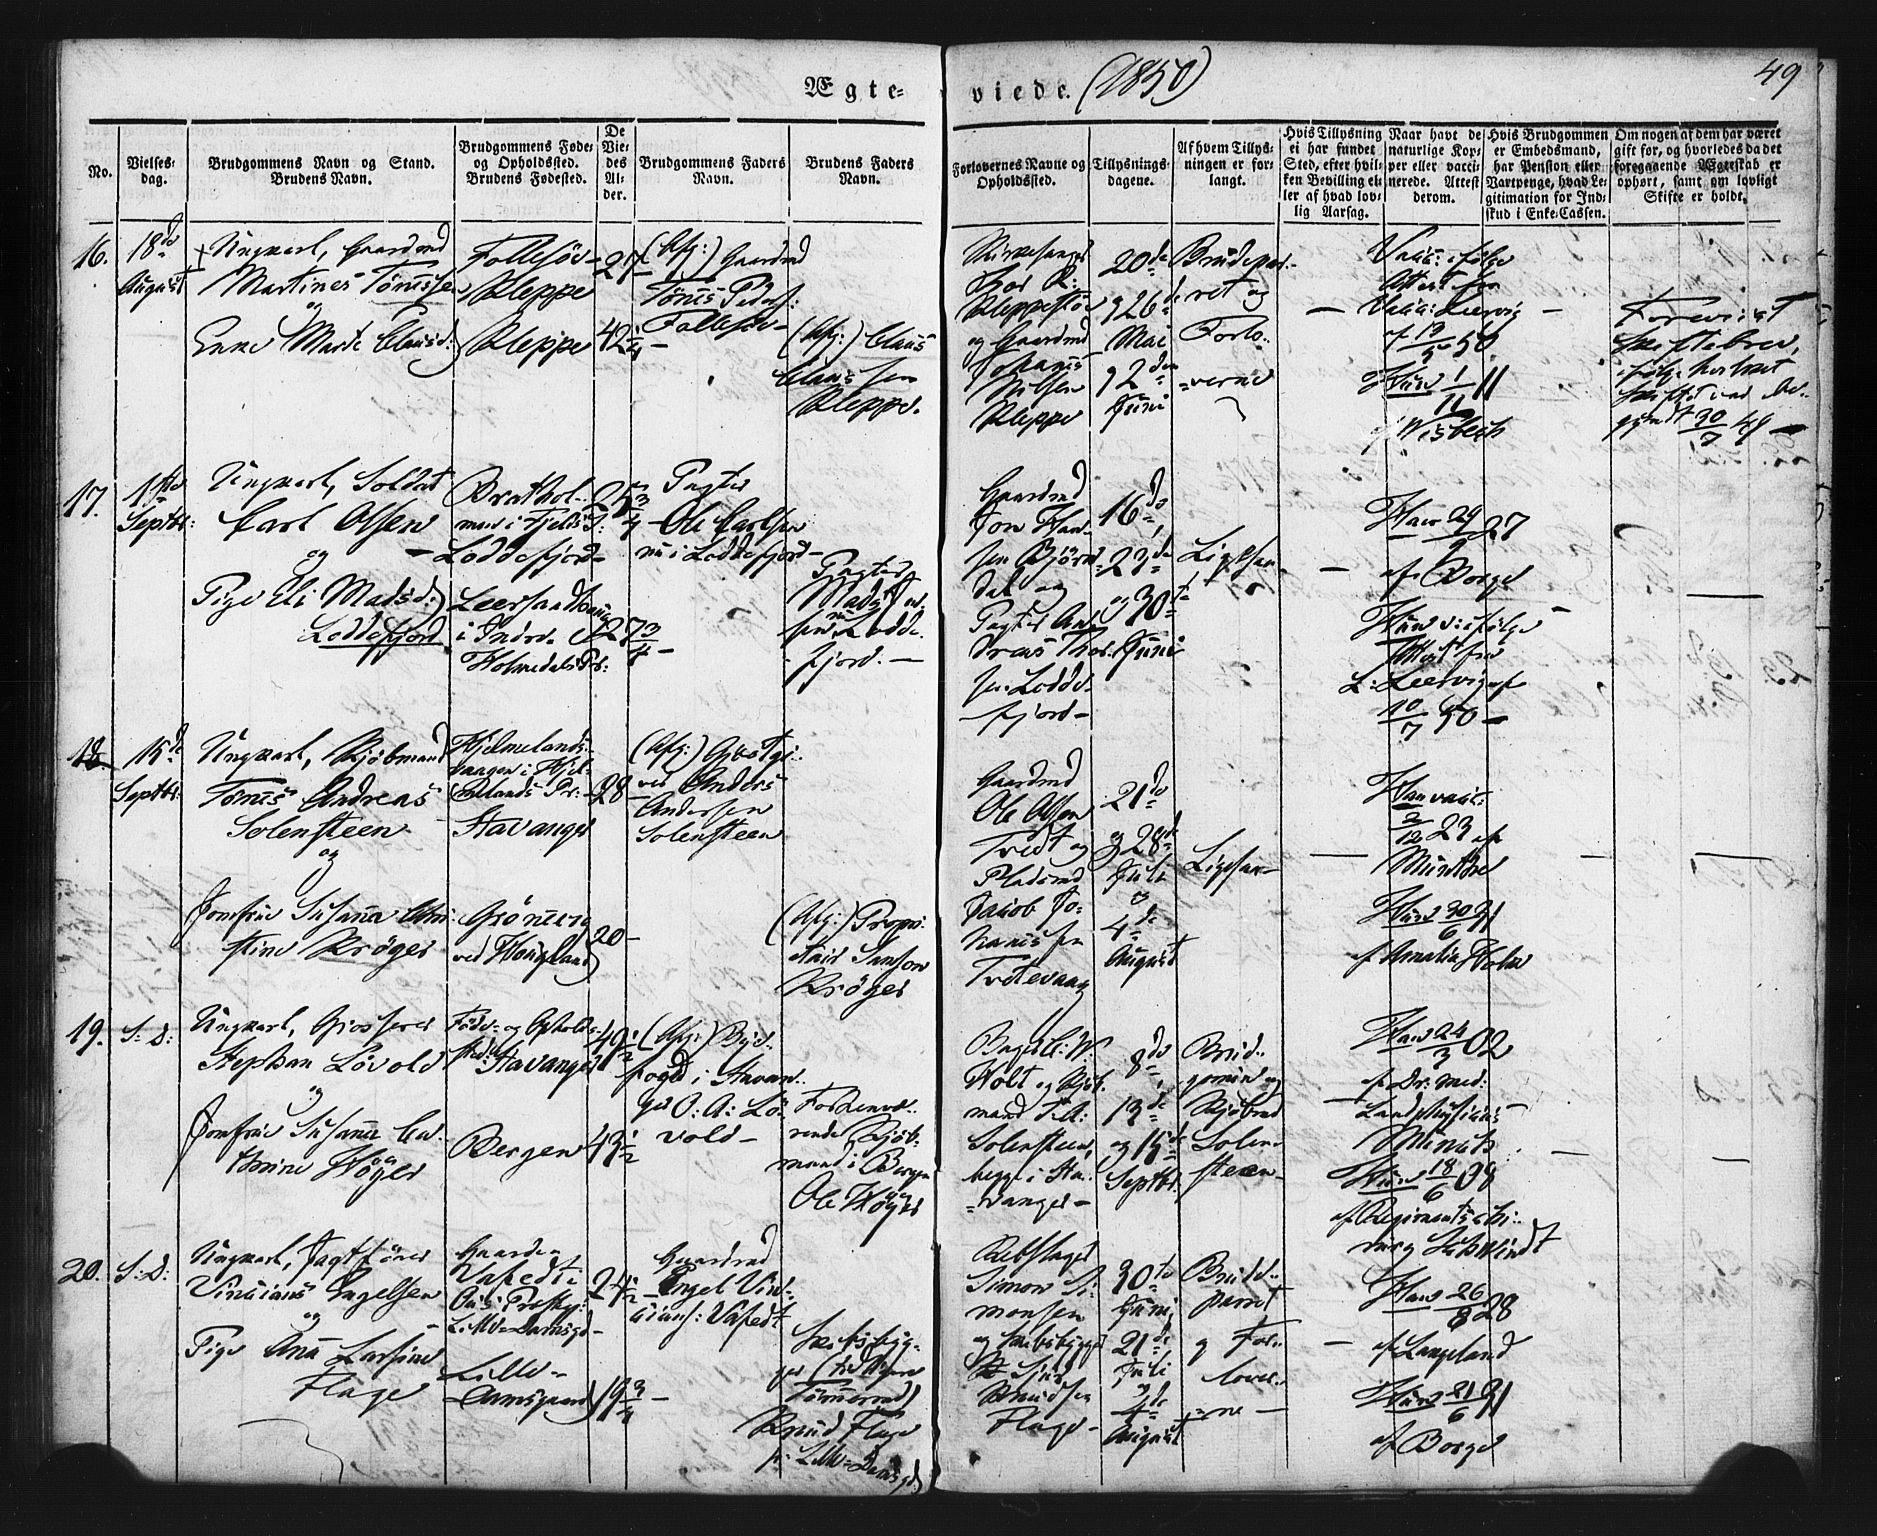 Ægte-
viede. (1850)
49
No.
Vielses-
dag.
Brudgommens Navn og Stand.
Brudens Navn.
Brudgommens Føde-
og Opholdssted.
Brudens Fødested.
De
Vie-
des
Al-
der.
Brudgommens Faders
Navn.
Brudens Faders
Navn.
Forlovernes Navne og
Opholdssted.
Tillysnings-
dagene.
Af hvem Tillys-
ningen er for-
langt.
Hvis Tillysning
ei har fundet
Sted, efter hvil-
ken Bevilling el-
ler af hvad lov-
lig Aarsag.
Naar havt de
naturlige Kop-
per eller vacci-
nerede. Attest
derom.
Hvis Brudgommen
er Embedsmand,
har Pension eller
Vartpenge, hvad Le-
gitimation for Ind-
skud i Enke-Cassen.
Om nogen af dem har været
gift før, og hvorledes da det
foregaaende Ægteskab er
ophørt, samt om lovligt
Skifte er holdt.
16.
18de
August
Ungkarl, Gaardmd
Martines Tönessen
og
Enke Marte Clausd:
Follesöe
Kleppe
Kleppe
27
42 1/4
(Afg:) Gaardmd
Tönis Peders:
Follesöe
(Afg:) Claus
Claussen
Kleppe.
Kirkesanger
Kleppestöe
og Gaardmd
Johanis
Nilsen
Kleppe
20de
26de
Mai
2den
Juni
Brudepar-
ret og
Forlo-
verne
Vacc: ifölge
Attest fra
Leervig
af 13/5 50
Hun 1/11 11
af Wisbech
Foreviist
Skiftebrev,
ifölge hvilket
Skiftet var be-
gyndt 30/7 49
17.
1ste
Septbr:
Ungkarl, Soldat
Carl Olssen
og
Pige Eli Madsd:
Loddefjord
Brathol-
men i Fjeld S:
Loddefjord
Leersandhaug
i Indre
Holmedals Pr:
25 3/4
27 3/4
Pagter
Ole Carlsen
nu i Loddefjord
Pagter
Mads
nu Lodde-
fjord.
Gaardmd
Jon Han-
sen Björn-
dal og
Pagter An-
dreas Thor-
sen Lodde-
fjord
16de,
23de
og 30te
Juni
Ligesaa
Han 24/9 27
af Borge
Hun v: ifölge
Attest fra
L: Leervig af
10/7 50
18.
15de
Septbr:
Ungkarl, Kjöbmand
Tönis Andreas
Solensteen
og
Jomfrue Susanna Chri-
stine Kröger
Hjelmelands-
vaagen i Hjel-
melands Pr:
Stavanger
Grönevig
ved Hougland
28
20
(Afg:) Gjæstgi-
ver Anders
Andersen
Solensteen
(Afg:) Propri-
etair Samson
Kröger
Gaardmd
Ole Olsen
Tvedt og
Pladsmd
Jacob Jo-
hannissen
Tvetevaag
21de
og 28de
Juli
og
4de
August
Ligesaa
Han vacc:
2/12 23 af
Münthe
Hun 30/6 31
af Amalia Holm
19.
S: D:
Ungkarl, Grosserer
Stephan Lövold
og
Jomfrue Susanna Ca-
thrine Höyer
Föde- og Opholds-
sted: Stavanger
Bergen
49 1/2
43 1/2
(Afg:) Bye-
foged i Stavan-
ger O: A: Lö-
vold
Forhenvæ-
rende Kjöb-
mand i Bergen
Ole Höyer
Bager C: W:
Holt og Kjöb-
mand T: A:
Solensteen,
begge i Sta-
vanger
8de,
13de
og 15de
Septbr.
Brud-
gommen og
Kjöbmd
Solen-
steen
Han 24/3 02
af Dr: med:
Landphysicus
Hun 18/6 08
af Regimentschi-
rurg Schwindt
20.
S: D:
Ungkarl, Jagtförer
Vincians Engelsen
og
Pige Anna Larsine
Flage
Gaarden
Lille-Damsgd
Lille-
Damsgaard
24 1/2
19 3/4
Gaardmd
Engel Vin-
cians: Vafedt
Skibsbyg-
ger (tidligere
Tömmermd)
Knud Flage
p: Lille-Damsgd
Rebslager
Simon Si-
monsen
og Skibsbygger
Sjur
Knudsen
Flage
30te
Juni,
21de
Juli
og
4de
August
Brude-
parret
og For-
lover-
ne
Han 26/8 28
af Langeland
Hun 21/6 31
af Borge